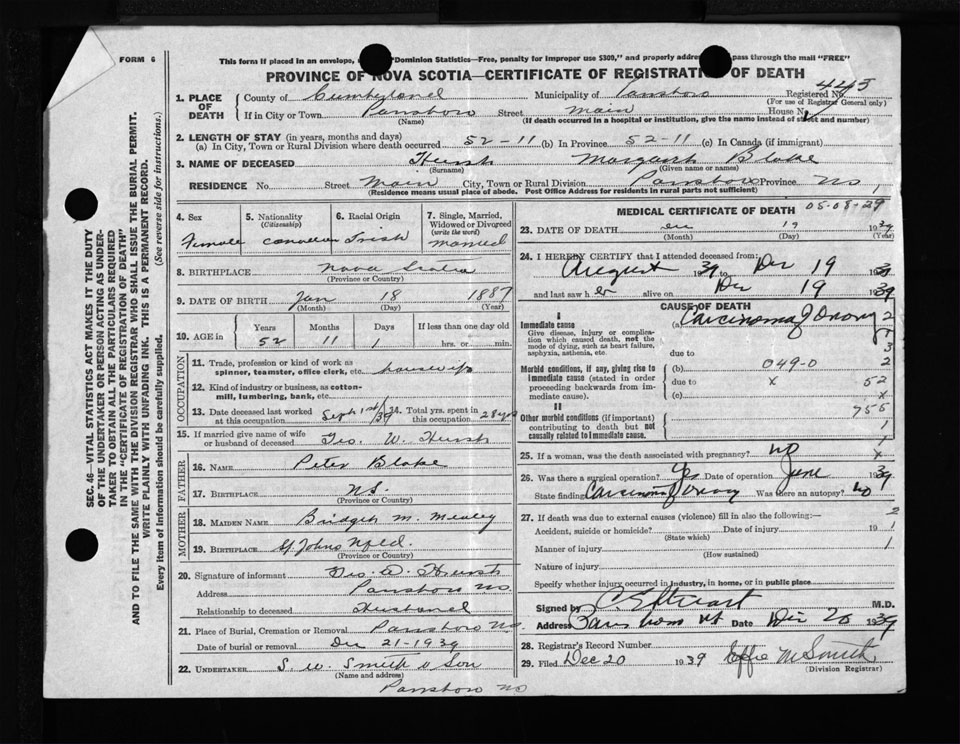 FORM 6
This form if placed in an envelope, "Dominion Statistics—Free, penalty for improper use $300," and properly addre pass through the mail "FREE"
PROVINCE OF NOVA SCOTIA—CERTIFICATE OF REGISTRATION OF DEATH
445
1. PLACE OF DEATH County of Cumberland Municipality of Parrsboro Registered No
(For use of Registrar General only)
If in City or Town Parrsboro Street Main House No
(Name) (If death occurred in a hospital or institution, give the name instead of street and number)
2. LENGTH OF STAY (in years, months and days)
(a) In City, Town or Rural Division where death occurred 52-11 (b) In Province 52-11 (c) In Canada (if immigrant)
3. NAME OF DECEASED Hursh Margaret Blake
(Surname) (Given name or names)
RESIDENCE No. Street Main City, Town or Rural Division Parrsboro Province NS
(Residence means usual place of abode. Post Office Address for residents in rural parts not sufficient)
4. Sex Female
5. Nationality (Citizenship) Canadian
6. Racial Origin Irish
7. Single, Married, Widowed or Divorced (write the word) Married
8. BIRTHPLACE Nova Scotia
(Province or Country)
9. DATE OF BIRTH Jan 18 1887
(Month) (Day) (Year)
10. AGE in Years Months Days If less than one day old
52 11 1 hrs. or min.
OCCUPATION
11. Trade, profession or kind of work as spinner, teamster, office clerk, etc. housewife
12. Kind of industry or business, as cotton-mill, lumbering, bank, etc.
13. Date deceased last worked at this occupation Sept 1st/39 14. Total yrs. spent in this occupation 28 yrs
15. If married give name of wife or husband of deceased Geo. W. Hursh
FATHER
16. NAME Peter Blake
17. BIRTHPLACE NS.
(Province or Country)
MOTHER
18. MAIDEN NAME Bridget M. Mealey
19. BIRTHPLACE St Johns Nfld.
(Province or Country)
20. Signature of informant Geo. W. Hursh
Address Parrsboro NS.
Relationship to deceased Husband
21. Place of Burial, Cremation or Removal Parrsboro NS.
Date of burial or removal Dec 21-1939
22. UNDERTAKER S. W. Smith & Son
(Name and address)
Parrsboro NS
MEDICAL CERTIFICATE OF DEATH 05-08-29
23. DATE OF DEATH Dec 19 1939
(Month) (Day) (Year)
24. I HEREBY CERTIFY that I attended deceased from:
August 1939 to Dec 19 1939
and last saw her alive on Dec 19 1939
CAUSE OF DEATH
I
Immediate cause (a) Carcinoma of Ovary
Give disease, injury or complication which caused death, not the mode of dying, such as heart failure, asphyxia, asthenia, etc.
due to
Morbid conditions, if any, giving rise to immediate cause (stated in order proceeding backwards from immediate cause). (b) 049-0
due to x
(c)
II
Other morbid conditions (if important) contributing to death but not causally related to immediate cause.
2
3
2
52
x
755
1
25. If a woman, was the death associated with pregnancy? no
26. Was there a surgical operation? Yes Date of operation June 1939
State finding Carcinoma of Ovary Was there an autopsy? no
27. If death was due to external causes (violence) fill in also the following:— 2
Accident, suicide or homicide? Date of injury 19 1
(State which)
Manner of injury 1
(How sustained)
Nature of injury
Specify whether injury occurred in industry, in home, or in public place
Signed by C. E. Stuart M.D.
Address Parrsboro NS Date Dec 20 1939
28. Registrar's Record Number
29. Filed Dec 20 1939 Effie M Smith
(Division Registrar)
SEC. 46—VITAL STATISTICS ACT MAKES IT THE DUTY
OF THE UNDERTAKER OR PERSON ACTING AS UNDER-
TAKER TO OBTAIN ALL THE PARTICULARS REQUIRED
IN THE "CERTIFICATE OF REGISTRATION OF DEATH"
AND TO FILE THE SAME WITH THE DIVISION REGISTRAR WHO SHALL ISSUE THE BURIAL PERMIT.
WRITE PLAINLY WITH UNFADING INK. THIS IS A PERMANENT RECORD.
Every item of information should be carefully supplied. (See reverse side for instructions.)